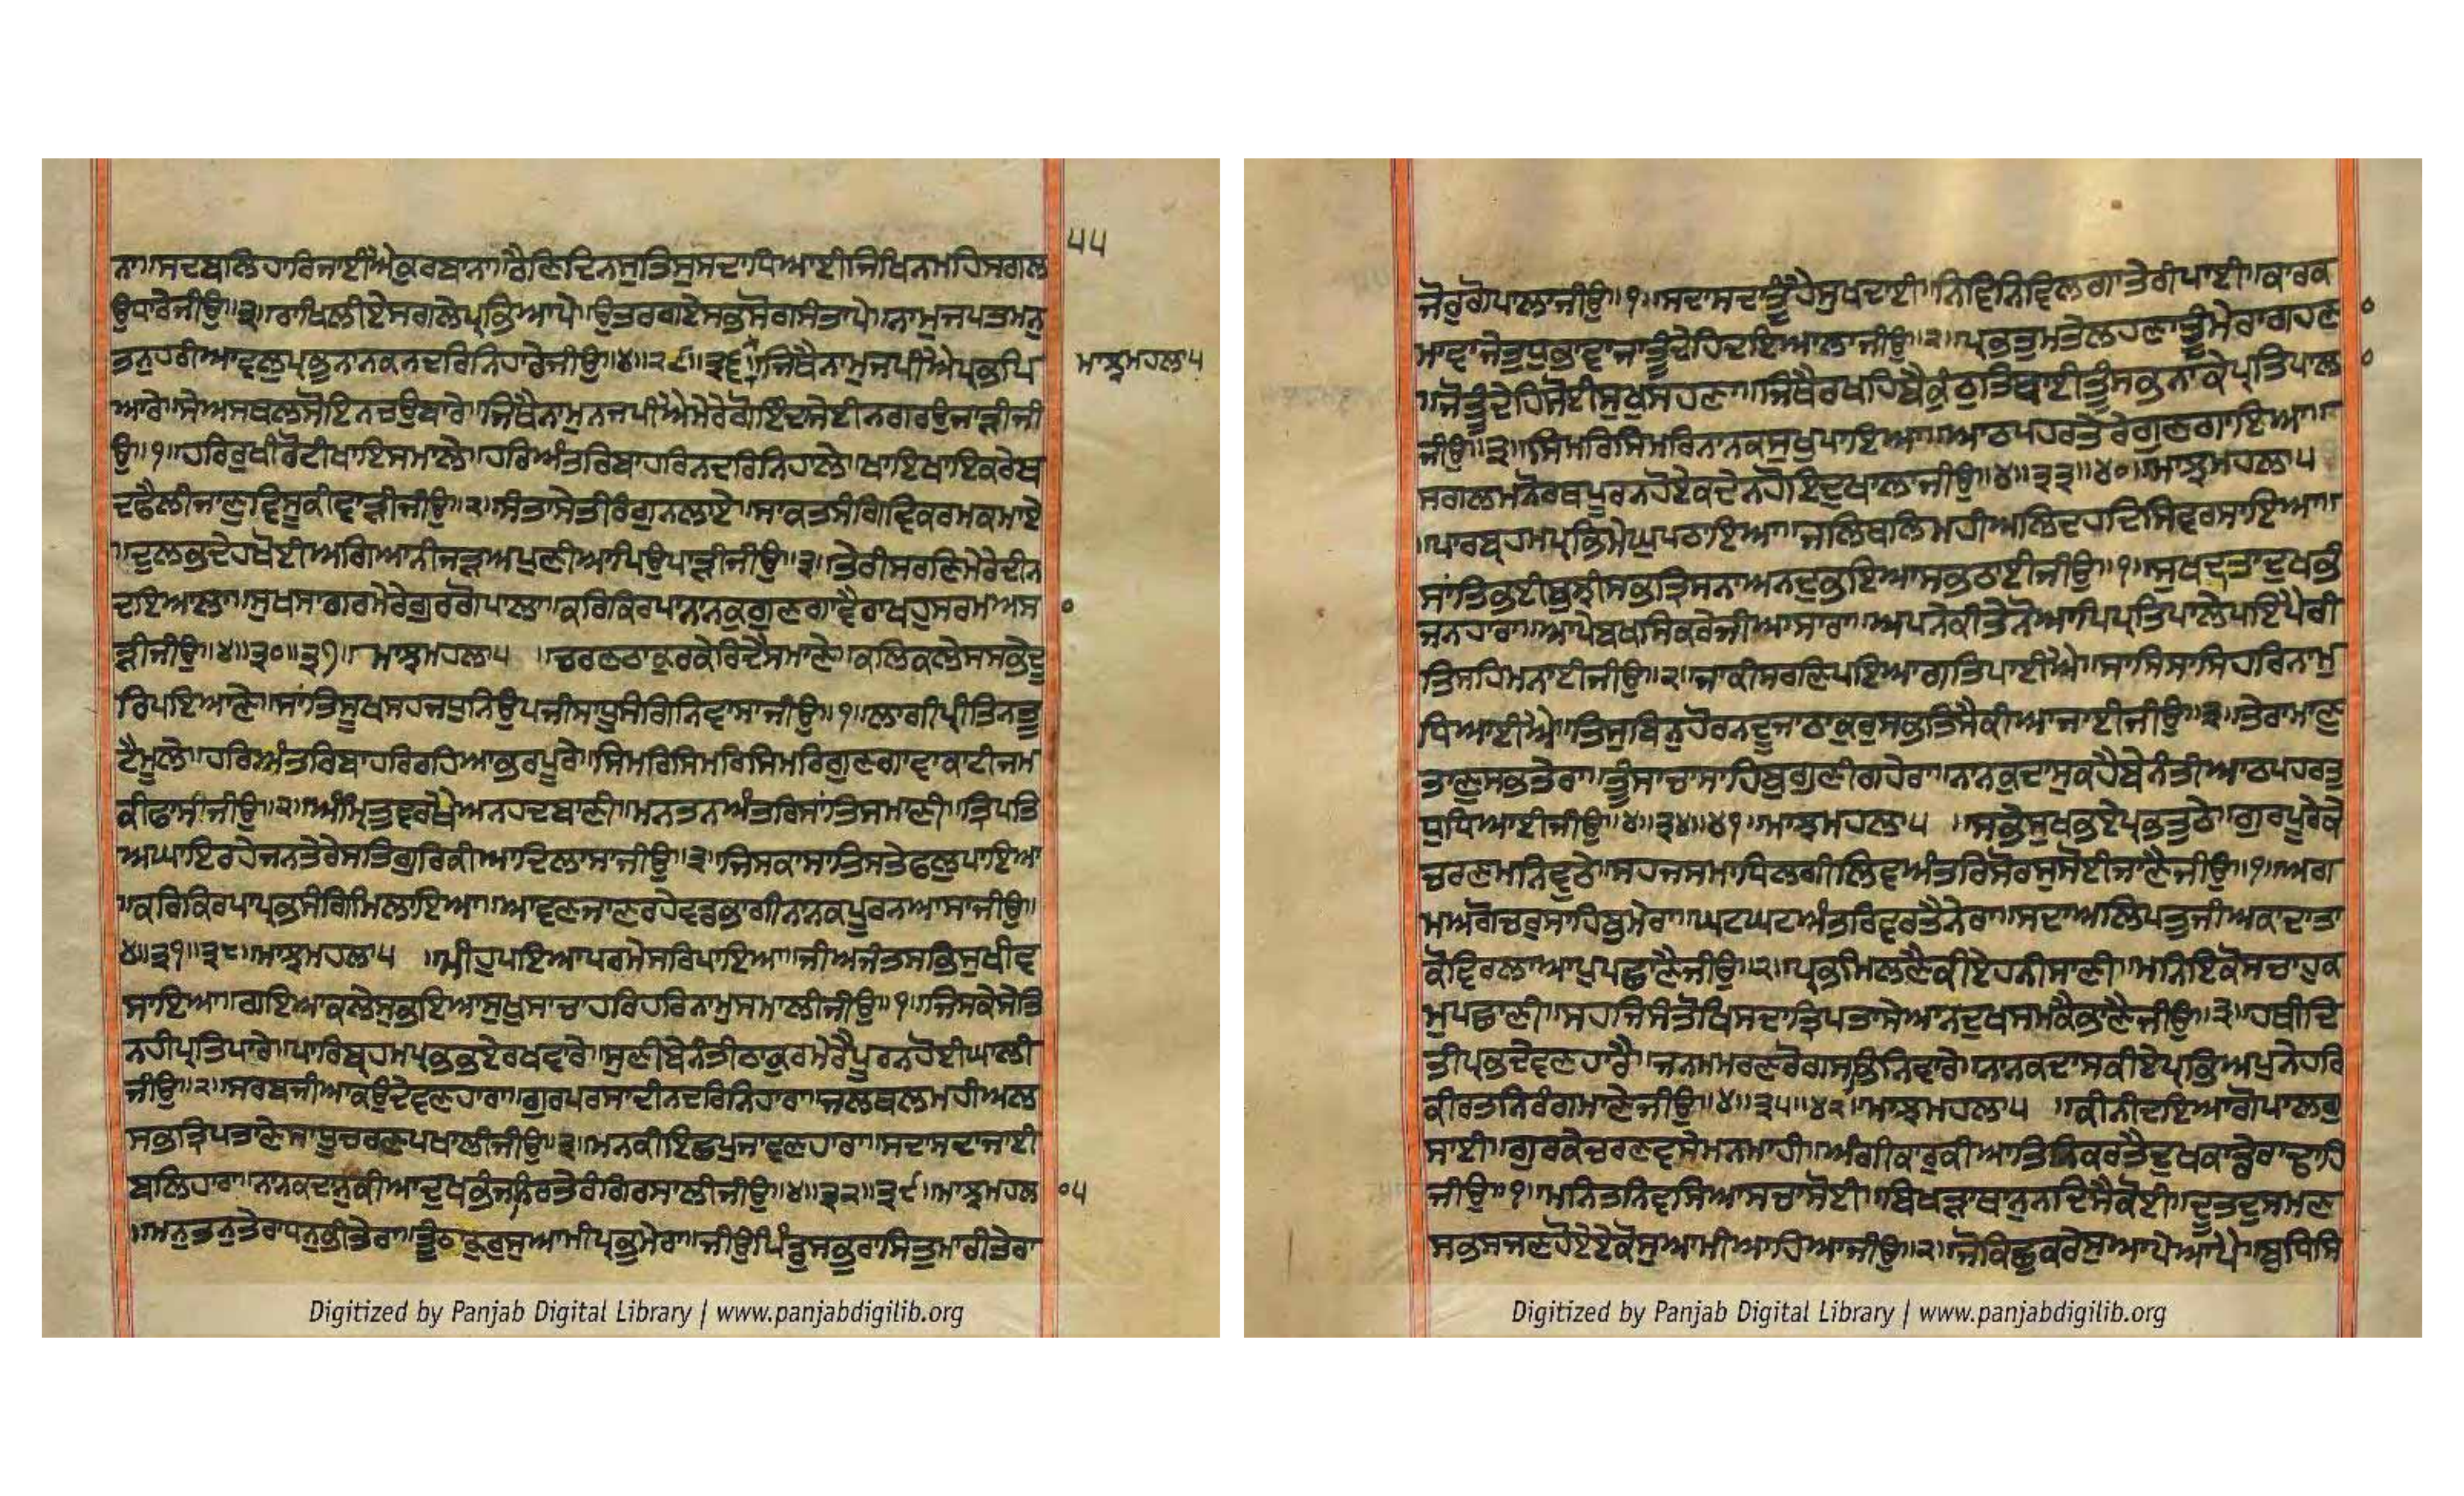 ੫੫
ਨਾ॥ਸਦਬਲਿਹਾਰਿਜਾਈਐਕੁਰਬਾਨਾ॥ਰੈਣਿਦਿਨਸੁਤਿਸੁਸਦਾਧਿਆਈਜਿਖਿਨਮਹਿਸਗਲ
ਉਧਾਰੇਜੀਉ॥੩॥ਰਾਖਿਲੀਏਸਗਲੇਪ੍ਰਭਿਆਪੇ॥ਉਤਰਗਏਸਭਸੋਗਸੰਤਾਪੇ॥ਨਾਮੁਜਪਤਮਨੁ
ਤਨੁਹਰੀਆਵਲੁਪ੍ਰਭੁਨਾਨਕਨਦਰਿਨਿਹਾਰੇਜੀਉ॥੪॥੨੯॥੩੬॥ਜਿਥੈਨਾਮੁਜਪੀਐਪ੍ਰਭਪਿ
ਮਾਝਮਹਲਾ੫
ਆਰੇ॥ਸੇਅਸਥਲਸੋਇਨਚਉਬਾਰੇ॥ਜਿਥੈਨਾਮੁਨਜਪੀਐਮੇਰੇਗੋਇੰਦਸੇਈਨਗਰਉਜਾੜੀਜੀ
ਉ॥੧॥ਹਰਿਰੁਖੀਰੋਟੀਖਾਇਸਮਾਲੇ॥ਹਰਿਅੰਤਰਿਬਾਹਰਿਨਦਰਿਨਿਹਾਲੇ॥ਖਾਇਖਾਇਕਰੇਬ
ਦਫੈਲੀਜਾਣੁਵਿਸੁਕੀਵਾੜੀਜੀਉ॥੨॥ਸੰਤਾਸੇਤੀਰੰਗੁਨਲਾਏ॥ਸਾਕਤਸੰਗਿਵਿਕਰਮਕਮਾਏ
॥ਦੁਲਭਦੇਹਖੋਈਅਗਿਆਨੀਜੜਅਪੁਣੀਆਪਿਉਪਾੜੀਜੀਉ॥੩॥ਤੇਰੀਸਰਣਿਮੇਰੇਦੀਨ
ਦਇਆਲਾ॥ਸੁਖਸਾਗਰਮੇਰੇਗੁਰਗੋਪਾਲਾ॥ਕਰਿਕਿਰਪਾਨਾਨਕੁਗੁਣਗਾਵੈਰਾਖਹੁਸਰਮਅਸਾ
ੜੀਜੀਉ॥੪॥੩੦॥੩੭॥ਮਾਝਮਹਲਾ੫ ॥ਚਰਣਠਾਕੁਰਕੇਰਿਦੈਸਮਾਣੇ॥ਕਲਿਕਲੇਸਸਭਦੂ
ਰਿਪਇਆਣੇ॥ਸਾਂਤਿਸੂਖਸਹਜਧੁਨਿਉਪਜੀਸਾਧੂਸੰਗਿਨਿਵਾਸਾਜੀਉ॥੧॥ਲਾਗੀਪ੍ਰੀਤਿਨਤੂ
ਟੈਮੂਲੇ॥ਹਰਿਅੰਤਰਿਬਾਹਰਿਰਹਿਆਭਰਪੂਰੇ॥ਸਿਮਰਿਸਿਮਰਿਸਿਮਰਿਗੁਣਗਾਵਾਕਾਟੀਜਮ
ਕੀਫਾਸੀਜੀਉ॥੨॥ਅੰਮ੍ਰਿਤੁਵਰਖੈਅਨਹਦਬਾਣੀ॥ਮਨਤਨਅੰਤਰਿਸਾਂਤਿਸਮਾਣੀ॥ਤ੍ਰਿਪਤਿ
ਅਘਾਇਰਹੇਜਨਤੇਰੇਸਤਿਗੁਰਿਕੀਆਦਿਲਾਸਾਜੀਉ॥੩॥ਜਿਸਕਾਸਾਤਿਸਤੇਫਲੁਪਾਇਆ
॥ਕਰਿਕਿਰਪਾਪ੍ਰਭਸੰਗਿਮਿਲਾਇਆ॥ਆਵਣਜਾਣਰਹੇਵਡਭਾਗੀਨਾਨਕਪੂਰਨਆਸਾਜੀਉ॥
੪॥੩੧॥੩੮॥ਮਾਝਮਹਲਾ੫ ॥ਮੀਹੁਪਇਆਪਰਮੇਸਰਿਪਾਇਆ॥ਜੀਅਜੰਤਸਭਿਸੁਖੀਵ
ਸਾਇਆ॥ਗਇਆਕਲੇਸੁਭਇਆਸੁਖੁਸਾਚਾਹਰਿਹਰਿਨਾਮੁਸਮਾਲੀਜੀਉ॥੧॥ਜਿਸਕੇਸੇਤਿ
ਨਹੀਪ੍ਰਤਿਪਾਰੇ॥ਪਾਰਿਬ੍ਰਹਮਪ੍ਰਭਭਏਰਖਵਾਰੇ॥ਸੁਣੀਬੇਨੰਤੀਠਾਕੁਰਮੇਰੈਪੂਰਨਹੋਈਘਾਲੀ
ਜੀਉ॥੨॥ਸਰਬਜੀਆਕਉਦੇਵਣਹਾਰਾ॥ਗੁਰਪਰਸਾਦੀਨਦਰਿਨਿਹਾਰਾ॥ਜਲਥਲਮਹੀਅਲ
ਸਭਤ੍ਰਿਪਤਾਣੇਸਾਧੂਚਰਣਪਖਾਲੀਜੀਉ॥੩॥ਮਨਕੀਇਛਪੁਜਾਵਣਹਾਰਾ॥ਸਦਾਸਦਾਜਾਈ
ਬਲਿਹਾਰਾ॥ਨਾਨਕਦਾਨੁਕੀਆਦੁਖਭੰਜਨਿਰਤੇਰੰਗਿਰਸਾਲੀਜੀਉ॥੪॥੩੨॥੩੯॥ਮਾਝਮਹਲਾ੫
॥ਮਨੁਤਨੁਤੇਰਾਧਨੁਭੀਤੇਰਾ॥ਤੂੰਠਾਕੁਰੁਸੁਆਮੀਪ੍ਰਭੁਮੇਰਾ॥ਜੀਉਪਿੰਡੁਸਭੁਰਾਸਿਤੁਮਾਰੀਤੇਰਾ
Digitized by Panjab Digital Library | www.panjabdigilib.org
ਜੋਰੁਗੋਪਾਲਾਜੀਉ॥੧॥ਸਦਾਸਦਾਤੂੰਹੈਸੁਖਦਾਈ॥ਨਿਵਿਨਿਵਿਲਗਾਤੇਰੀਪਾਈ॥ਕਾਰਕ
ਮਾਵਾਜੇਤੁਧੁਭਾਵਾਜਾਤੂੰਦੇਹਿਦਇਆਲਾਜੀਉ॥੨॥ਪ੍ਰਭਤੁਮਤੇਲਹਣਾਤੂੰਮੇਰਾਗਹਣਾ
॥ਜੋਤੂੰਦੇਹਿਸੋਈਸੁਖੁਸਹਣਾ॥ਜਿਥੈਰਖਹਿਬੈਕੁੰਠੁਤਿਥਾਈਤੂੰਸਭਨਾਕੇਪ੍ਰਤਿਪਾਲਾ
ਜੀਉ॥੩॥ਸਿਮਰਿਸਿਮਰਿਨਾਨਕਸੁਖੁਪਾਇਆ॥ਆਠਪਹਰਤੇਰੇਗੁਣਗਾਇਆ॥
ਸਗਲਮਨੋਰਥਪੂਰਨਹੋਏਕਦੇਨਹੋਇਦੁਖਾਲਾਜੀਉ॥੪॥੩੩॥੪੦॥ਮਾਝਮਹਲਾ੫
॥ਪਾਰਬ੍ਰਹਮਪ੍ਰਭਿਮੇਘੁਪਠਾਇਆ॥ਜਲਿਥਲਿਮਹੀਅਲਿਦਹਦਿਸਿਵਰਸਾਇਆ॥
ਸਾਂਤਿਭਈਬੁਝੀਸਭਤ੍ਰਿਸਨਾਅਨਦੁਭਇਆਸਭਠਾਈਜੀਉ॥੧॥ਸੁਖਦਾਤਾਦੁਖਭੰ
ਜਨਹਾਰਾ॥ਆਪੇਬਖਸਿਕਰੇਜੀਆਸਾਰਾ॥ਅਪਨੇਕੀਤੇਨੋਆਪਿਪ੍ਰਤਿਪਾਲੇਪਇਪੈਰੀ
ਤਿਸਹਿਮਨਾਈਜੀਉ॥੨॥ਜਾਕੀਸਰਣਿਪਇਆਗਤਿਪਾਈਐ॥ਸਾਸਿਸਾਸਿਹਰਿਨਾਮੁ
ਧਿਆਈਐ॥ਤਿਸੁਬਿਨੁਹੋਰੁਨਦੂਜਾਠਾਕੁਰੁਸਭਤਿਸੈਕੀਆਜਾਈਜੀਉ॥੩॥ਤੇਰਾਮਾਣੁ
ਤਾਣੁਸਭਤੇਰਾ॥ਤੂੰਸਾਚਾਸਾਹਿਬੁਗੁਣੀਗਹੇਰਾ॥ਨਾਨਕੁਦਾਸੁਕਹੈਬੇਨੰਤੀਆਠਪਹਰਤੁ
ਧੁਧਿਆਈਜੀਉ॥੪॥੩੪॥੪੧॥ਮਾਝਮਹਲਾ੫ ॥ਸਭੇਸੁਖਭਏਪ੍ਰਭਤੁਠੇ॥ਗੁਰਪੂਰੇਕੇ
ਚਰਣਮਨਿਵੁਠੇ॥ਸਹਜਸਮਾਧਿਲਗੀਲਿਵਅੰਤਰਿਸੋਰਸੁਸੋਈਜਾਣੈਜੀਉ॥੧॥ਅਗ
ਮਅਗੋਚਰੁਸਾਹਿਬੁਮੇਰਾ॥ਘਟਘਟਅੰਤਰਿਵਰਤੈਨੇਰਾ॥ਸਦਾਅਲਿਪਤੁਜੀਆਕਾਦਾਤਾ
ਕੋਵਿਰਲਾਆਪੁਪਛਾਣੈਜੀਉ॥੨॥ਪ੍ਰਭਮਿਲਣੈਕੀਏਹਨੀਸਾਣੀ॥ਮਨਿਇਕੋਸਚਾਹੁਕ
ਮੁਪਛਾਣੀ॥ਸਹਜਿਸੰਤੋਖਿਸਦਾਤ੍ਰਿਪਤਾਸੇਅਨਦੁਖਸਮਕੈਭਾਣੈਜੀਉ॥੩॥ਹਥੀਦਿ
ਤੀਪ੍ਰਭਦੇਵਣਹਾਰੈ॥ਜਨਮਮਰਣਰੋਗਸਭਿਨਿਵਾਰੇ॥ਨਾਨਕਦਾਸਕੀਏਪ੍ਰਭਿਅਪੁਨੇਹਰਿ
ਕੀਰਤਨਿਰੰਗਮਾਣੇਜੀਉ॥੪॥੩੫॥੪੨॥ਮਾਝਮਹਲਾ੫ ॥ਕੀਨੀਦਇਆਗੋਪਾਲਗੁ
ਸਾਈ॥ਗੁਰਕੇਚਰਣਵਸੇਮਨਮਾਹੀ॥ਅੰਗੀਕਾਰੁਕੀਆਤਿਨਿਕਰਤੈਦੁਖਕਾਡੇਰਾਢਾਹਿ
ਜੀਉ॥੧॥ਮਨਿਤਨਿਵਸਿਆਸਚਾਸੋਈ॥ਬਿਖੜਾਥਾਨੁਨਦਿਸੈਕੋਈ॥ਦੂਤਦੁਸਮਣ
ਸਭਸਜਣਹੋਏਏਕੋਸੁਆਮੀਆਹਿਆਜੀਉ॥੨॥ਜੋਕਿਛੁਕਰੇਸੁਆਪੇਆਪੈ॥ਬੁਧਿਸਿ
Digitized by Panjab Digital Library | www.panjabdigilib.org